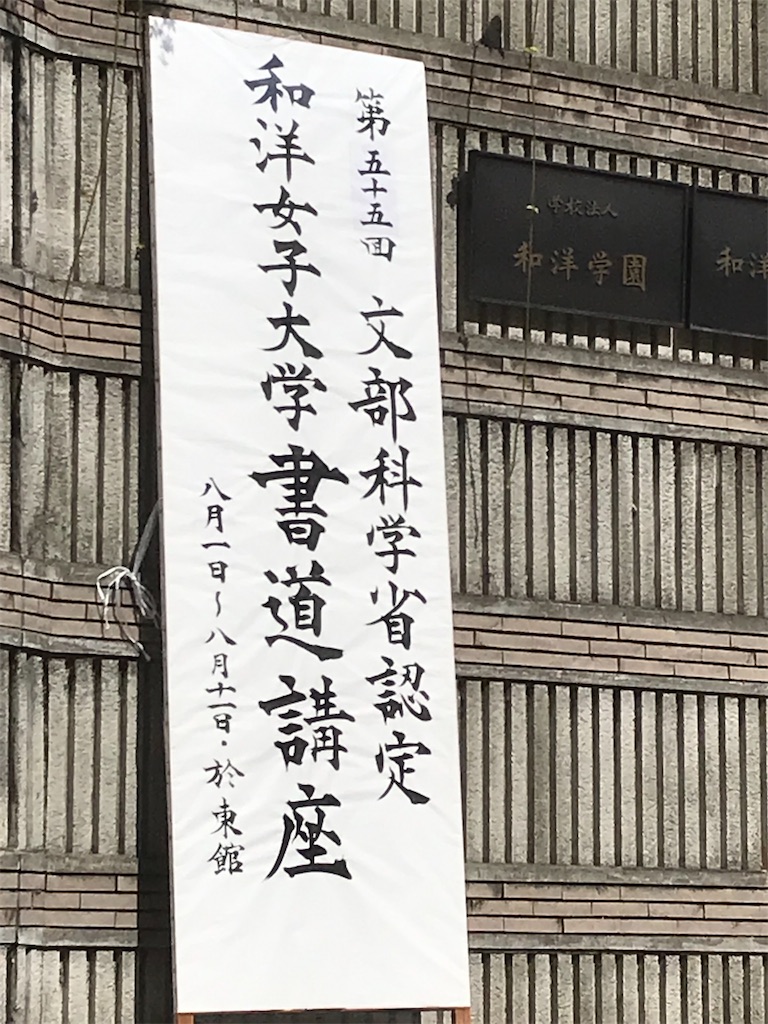 第五十五回 文部科学省認定
和洋女子大学書道講座
八月一日〜八月十一日・於東館
学校法人
和洋学園
和洋